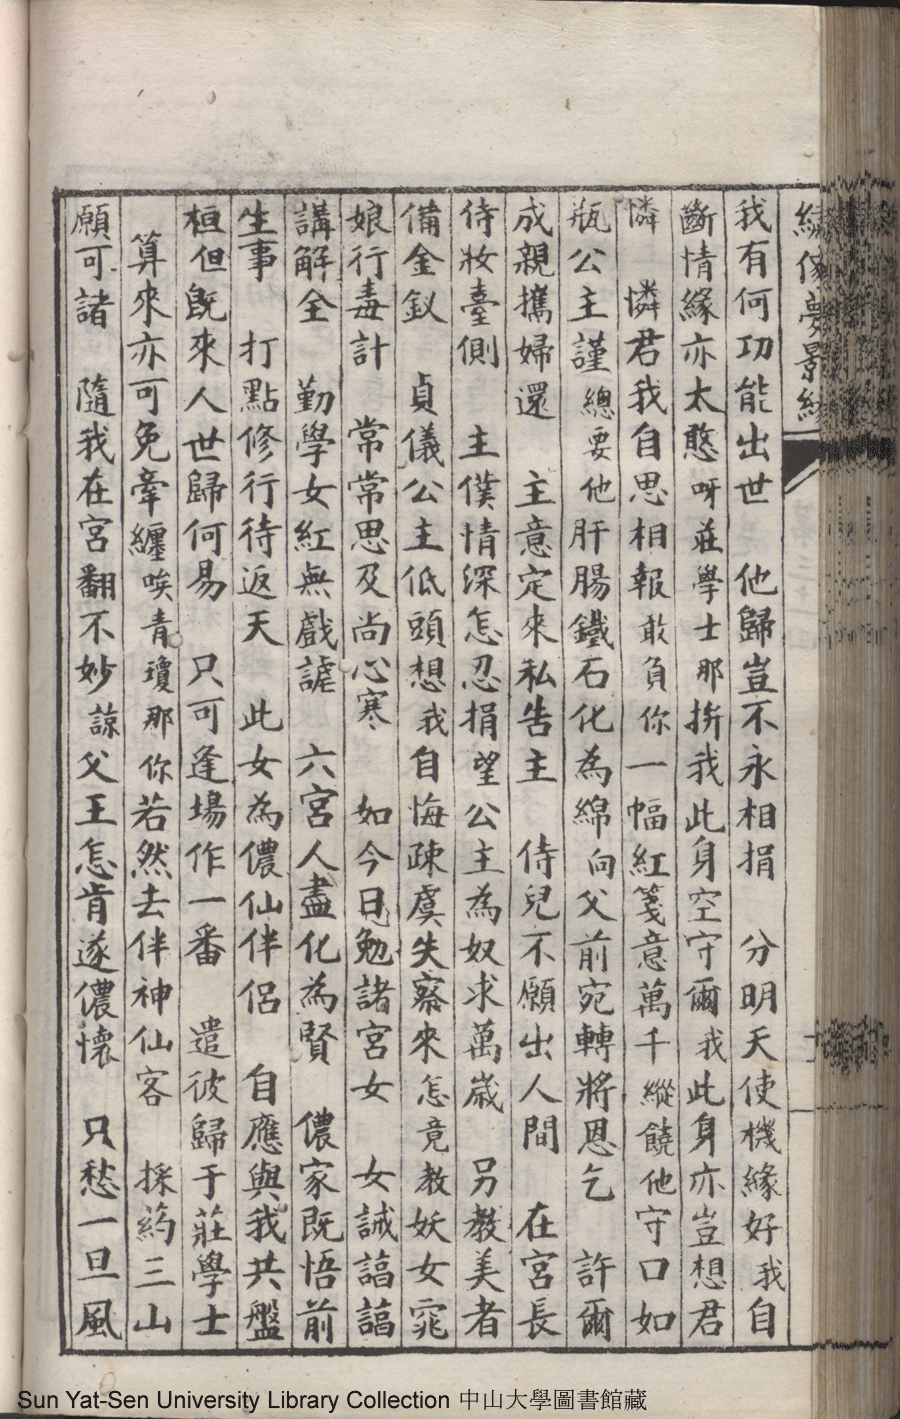 繡像夢影緣
我有何功能出世　他歸豈不永相捐　分明天使機緣好我自
斷情緣亦太憨呀莊學士那拚我此身空守爾我此身亦豈想君
憐　憐君我自思相報敢負你一幅紅箋意萬千縱饒他守口如
瓶公主謹總要他肝腸鐵石化為綿向父前宛轉將恩乞　許爾
成親攜婦還　主意定來私告主　侍兒不願出人間　在宮長
侍妝臺側　主僕情深怎忍捐望公主為奴求萬歲　另教美者
備金釵　貞儀公主低頭想我自悔疎虞失察來怎竟教妖女窕
娘行毒計　常常思及尚心寒　如今日勉諸宮女　女誡諄諄
講解全　勤學女紅無戲謔　六宮人盡化為賢　儂家既悟前
生事　打點修行待返天　此女為儂仙伴侶　自應與我共盤
桓但既來人世歸何易　只可逢場作一番　遣彼歸于莊學士
算來亦可免牽纏唉青瓊那你若然去伴神仙客　採葯三山
願可諧　隨我在宮翻不妙諒父王怎肯遂儂懷　只愁一旦風
Sun Yat-Sen University Library Collection 中山大學圖書館藏